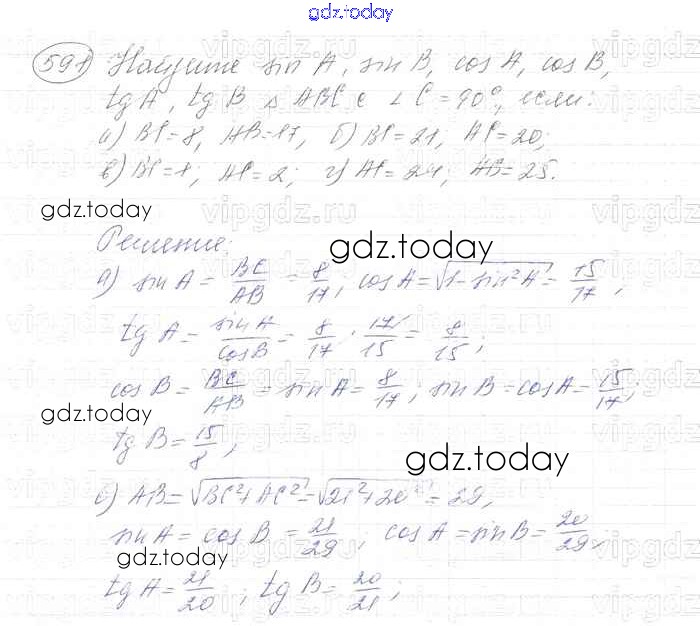 gdz.today
591 Найдите sin A, sin B, cos A, cos B,
tg A, tg B △ABC с ∠C = 90°, если:
а) BC = 8, AB = 17, б) BC = 21, AC = 20;
в) BC = 1; AC = 2; г) AC = 24; AB = 25.
gdz.today
Решение:
gdz.today
а) sin A = BC/AB = 8/17, cos A = √(1 - sin²A) = 15/17,
tg A = sin A/cos B = 8/17 · 17/15 = 8/15;
cos B = BC/AB = sin A = 8/17; sin B = cos A = 15/17;
gdz.today
tg B = 15/8;
gdz.today
б) AB = √(BC² + AC²) = √(21² + 20²) = 29,
sin A = cos B = 21/29; cos A = sin B = 20/29;
gdz.today
tg A = 21/20; tg B = 20/21;